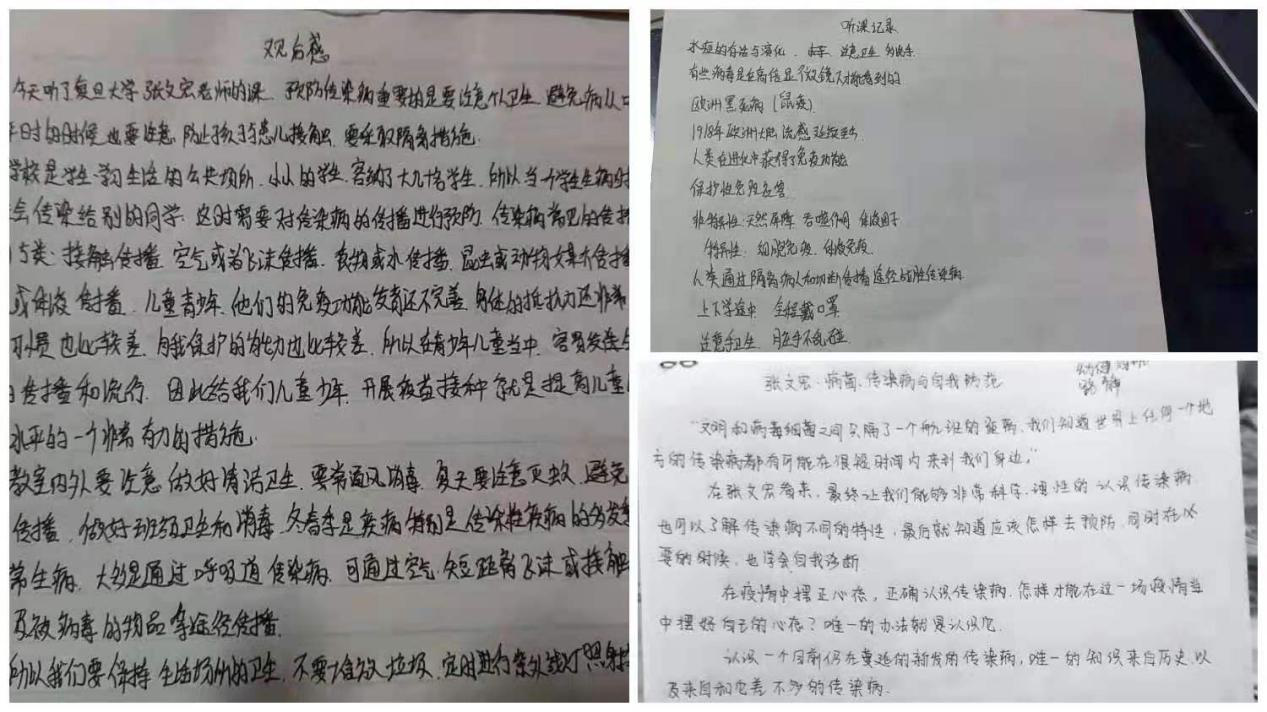 观后感
今天听了复旦大学张文宏老师的课。预防传染病重要的是要注意个人卫生,避免病从口
平日的时候也要注意,防止孩子与患儿接触,要采取隔离措施.
学校是学生学习生活的公共场所,小小的学生,容纳了大几十名学生,所以当个学生生病时
会传染给别的同学.这时需要对传染病的传播进行预防.传染病常见的传播
5类:接触传播.空气或者飞沫传播.食物或水传播.昆虫或动物媒介传播
或体液传播.儿童青少年,他们的免疫功能发育还不完善,身体的抵抗力还非常
习惯也比较差,自我保护的能力也比较差,所以在青少年儿童当中,容易发生
传播和流行.因此给我们儿童少年,开展疫苗接种就是提高儿童
水平的一个非常有力的措施.
教室内外要注意做好清洁卫生,要常通风消毒,夏天要注意灭蚊,避免
传播,做好班级卫生和消毒.冬春季是疾病特别是传染性疾病的多发季
常生病,大多是通过呼吸道传染病,可通过空气,短距离飞沫或接触
及被病毒的物品等途径传播.
所以我们要保持生活场所的卫生,不要堆放垃圾,定时进行紫外线灯照射
听课记录
有些病毒是在高倍显微镜下才能看到的
欧洲黑死病(鼠疫)
1918年欧洲大陆流感
人类在进化中获得了免疫功能
保护性免疫应答
非特异性:天然屏障 吞噬作用 体液因子
特异性:细胞免疫.体液免疫.
人类通过隔离病人和切断传播途径战胜传染病
上下学途中 全程戴口罩
注意手卫生 脏手不乱碰
张文宏:病菌、传染病与自我防范
路静
“文明和病毒细菌之间只隔了一个航班的距离,我们知道世界上任何一个地
方的传染病都有可能在很短时间内来到我们身边。”
在张文宏看来,最终让我们能够非常科学、理性的认识传染病,
也可以了解传染病不同的特性,最后就知道应该怎样去预防,同时在必
要的时候,也学会自我诊断
在疫情中摆正心态,正确认识传染病.怎样才能在这一场疫情当
中摆好自己的心态?唯一的办法就是认识它.
认识一个目前仍在蔓延的新发的传染病,唯一的知识来自历史,以
及来自和它差不多的传染病.